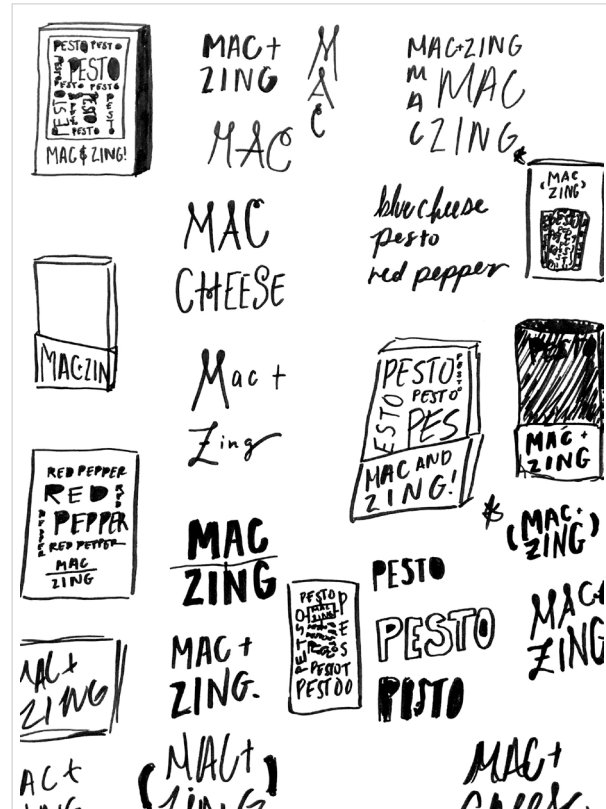 PESTO PESTO
PESTO
PESTO PESTO
PESTO
PESTO
PESTO
MAC & ZING!
MAC +
ZING
MAC
MAC
MAC+ZING
MAC
MAC
ZING
(MAC
ZING)
blue cheese
pesto
red pepper
MAC
CHEESE
MAC+ZIN
Mac +
Zing
PESTO
PESTO
PESTO
ESTO
PES
MAC AND
ZING!
PESTO
MAC +
ZING
RED PEPPER
RED
RED
PEPPER
PEPPER
RED PEPPER
MAC
ZING
MAC
ZING
(MAC+
ZING)
PESTO
PESTO
PESTO
PESTO
MAC
ZING
MAC+
ZING
MAC +
ZING.
MAC+
ZING
ACt
(MAC+)
ZING
MAC+
cheese